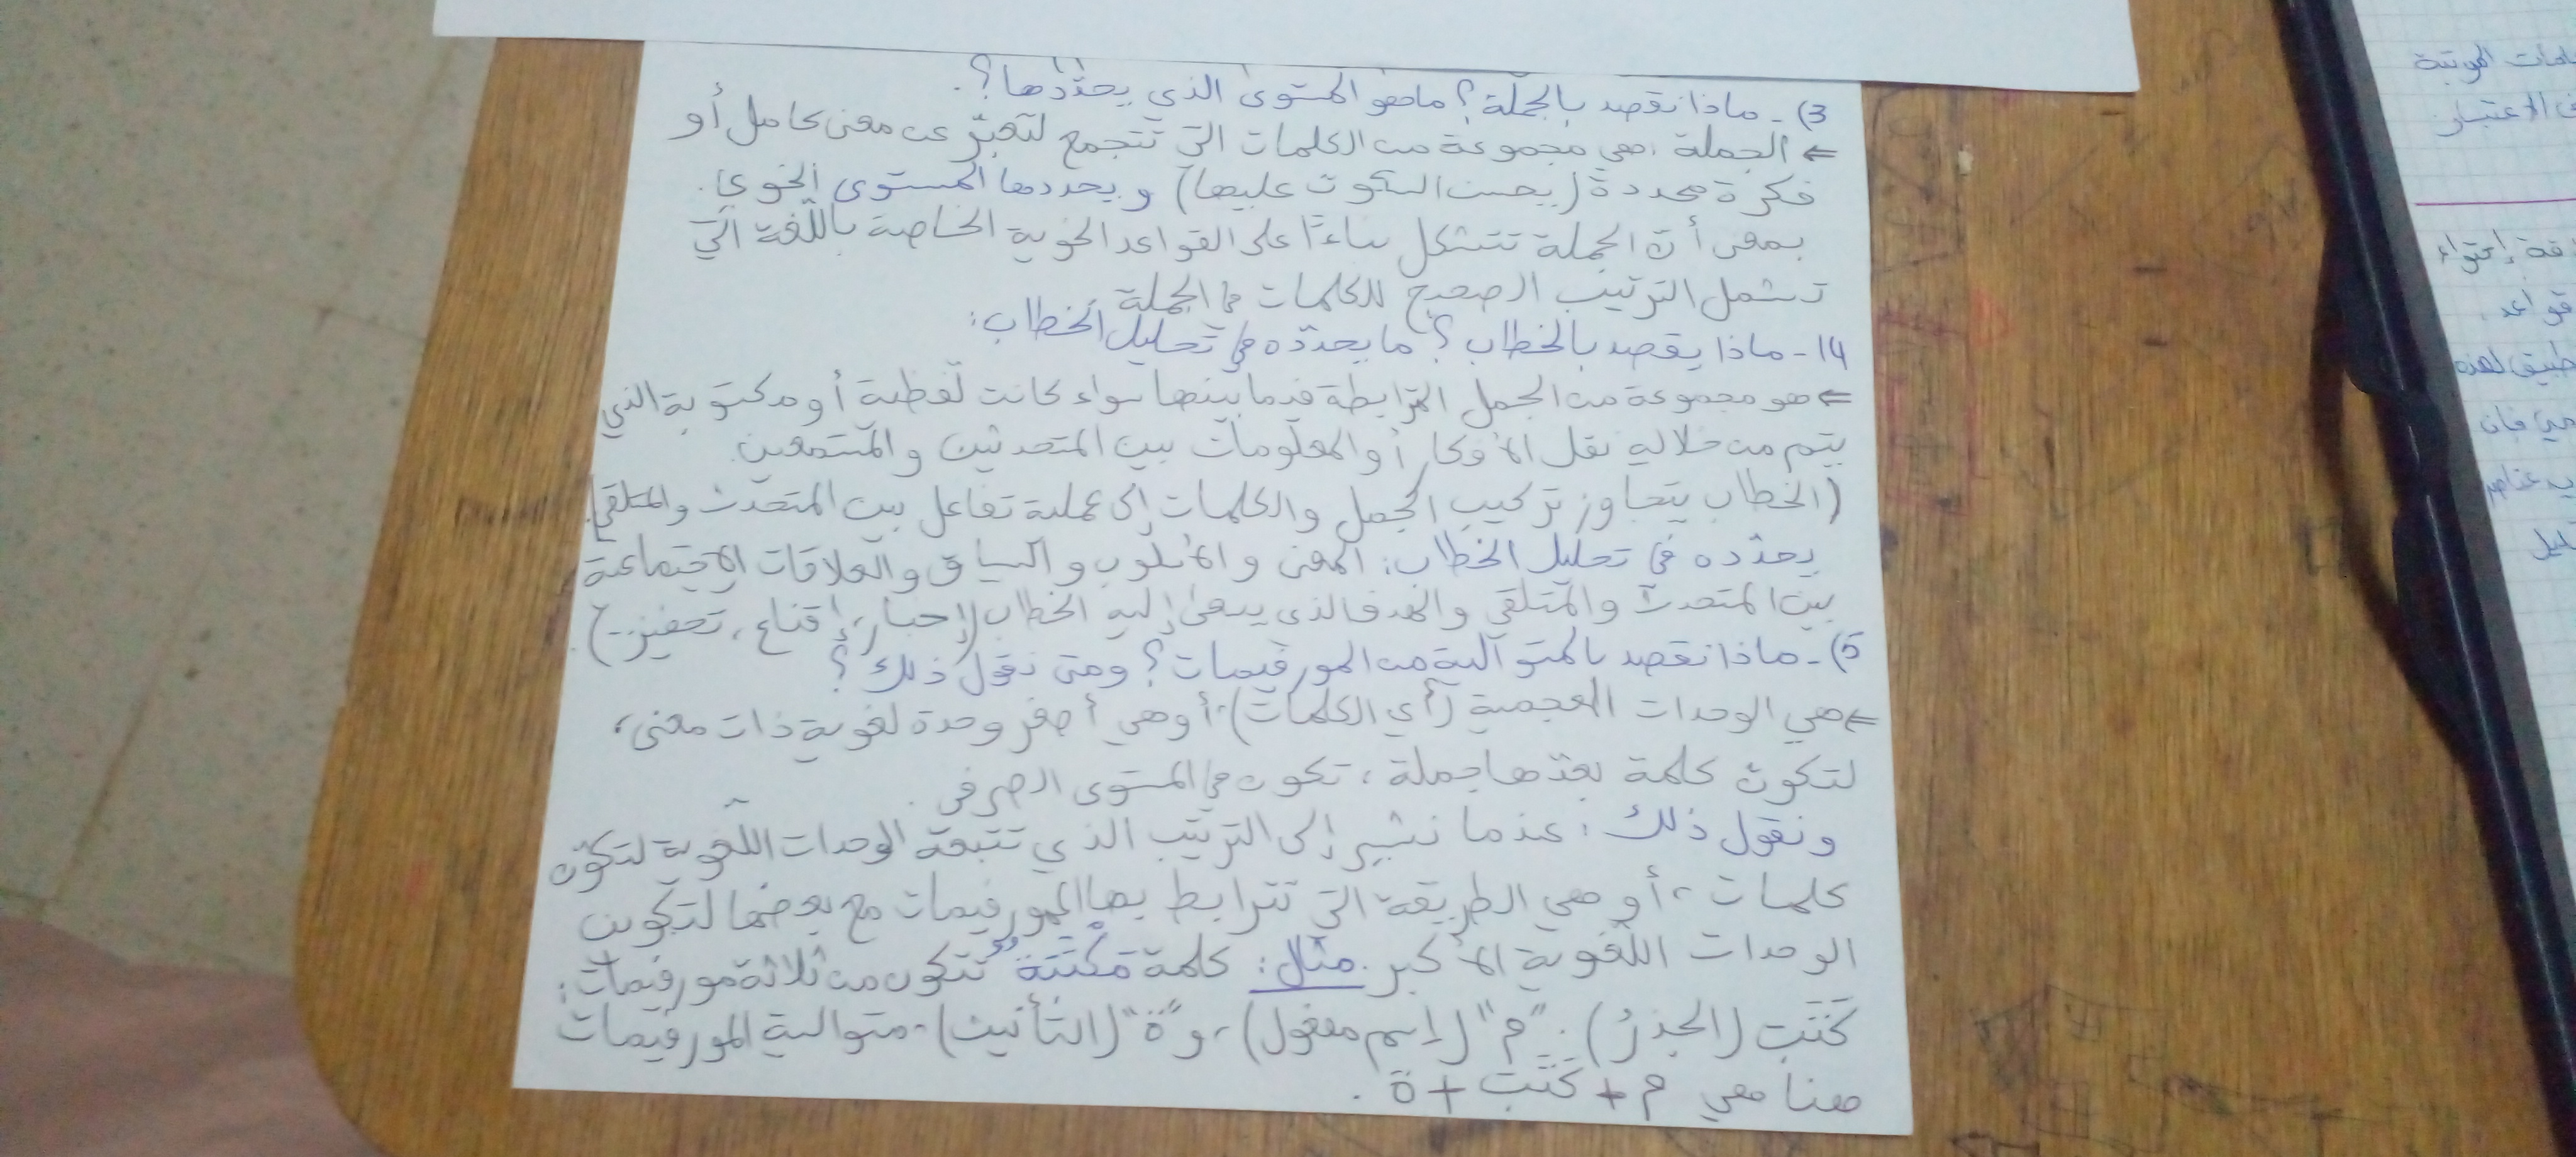 3)- ماذا نقصد بالجملة؟ ماهو المستوى الذي يحدّدها؟.
⇐ الجملة: هي مجموعة من الكلمات التي تتجمع لتعبّر عن معنى كامل أو
فكرة محددة (يحسن السكوت عليها) ويحددها المستوى النحوي.
بمعنى أن الجملة تتشكل بناءًا على القواعد النحوية الخاصة باللّغة التي
تشمل الترتيب الصحيح للكلمات في الجملة
14- ماذا يقصد بالخطاب؟ ما يحدّده في تحليل الخطاب:
⇐ هو مجموعة من الجمل المترابطة فيما بينها سواء كانت لفظية أو مكتوبة التي
يتم من خلاله نقل الأفكار أو المعلومات بين المتحدثين والمستمعين.
(الخطاب يتجاوز تركيب الجمل والكلمات إلى عملية تفاعل بين المتحدث والمتلقي).
يحدّده في تحليل الخطاب: المعنى والأسلوب والسياق والعلاقات الاجتماعية
بين المتحدث والمتلقي والهدف الذي يسعى إليه الخطاب (إخبار، إقناع، تحفيز..).
5)- ماذا نقصد بالمتوالية من المورفيمات؟ ومتى نقول ذلك؟
⇐ هي الوحدات المعجمية (أي الكلمات)، أو هي أصغر وحدة لغوية ذات معنى،
لتكون كلمة بعدها جملة، تكون في المستوى الصرفي.
ونقول ذلك: عندما نشير إلى الترتيب الذي تتبعه الوحدات اللغوية لتكوّن
كلمات، أو هي الطريقة التي تترابط بها المورفيمات مع بعضها لتكوين
الوحدات اللّغوية الأكبر. مثال: كلمة "مكتبة" تتكون من ثلاثة مورفيمات:
كَتَبَ (الجذرُ)، "م" (إسم مفعول)، و"ة" (التأنيث)، متوالية المورفيمات
هنا هي م + كَتَبَ + ة.
ة إحتواء
قواعد.